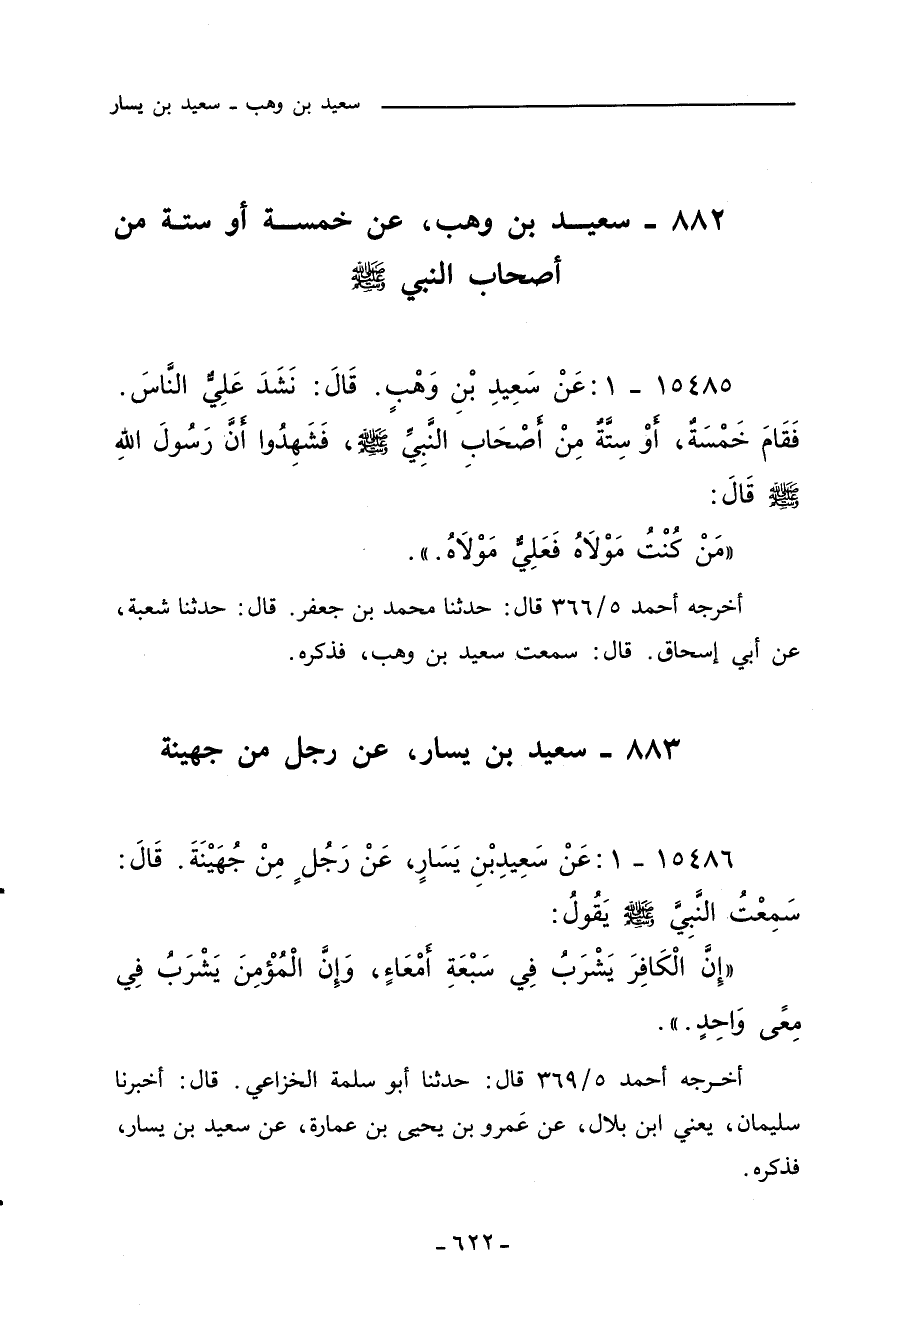 سعيد بن وهب ـ سعيد بن يسار
٨٨٢ ـ سعيد بن وهب، عن خمسة أو ستة من
أصحاب النبي ﷺ
١٥٤٨٥ ـ ١ : عَنْ سَعِيدِ بْنِ وَهْبٍ. قَالَ: نَشَدَ عَلِيٌّ النَّاسَ.
فَقَامَ خَمْسَةٌ، أَوْ سِتَّةٌ مِنْ أَصْحَابِ النَّبِيِّ ﷺ، فَشَهِدُوا أَنَّ رَسُولَ اللهِ
ﷺ قَالَ:
«مَنْ كُنْتُ مَوْلَاهُ فَعَلِيٌّ مَوْلَاهُ.».
أخرجه أحمد ٣٦٦/٥ قال: حدثنا محمد بن جعفر. قال: حدثنا شعبة،
عن أبي إسحاق. قال: سمعت سعيد بن وهب، فذكره.
٨٨٣ ـ سعيد بن يسار، عن رجل من جهينة
١٥٤٨٦ ـ ١ : عَنْ سَعِيدِبْنِ يَسَارٍ، عَنْ رَجُلٍ مِنْ جُهَيْنَةَ. قَالَ:
سَمِعْتُ النَّبِيَّ ﷺ يَقُولُ:
«إِنَّ الْكَافِرَ يَشْرَبُ فِي سَبْعَةِ أَمْعَاءٍ، وَإِنَّ الْمُؤْمِنَ يَشْرَبُ فِي
مِعًى وَاحِدٍ.».
أخرجه أحمد ٣٦٩/٥ قال: حدثنا أبو سلمة الخزاعي. قال: أخبرنا
سليمان، يعني ابن بلال، عن عَمرو بن يحيى بن عمارة، عن سعيد بن يسار،
فذكره.
ـ ٦٢٢ ـ